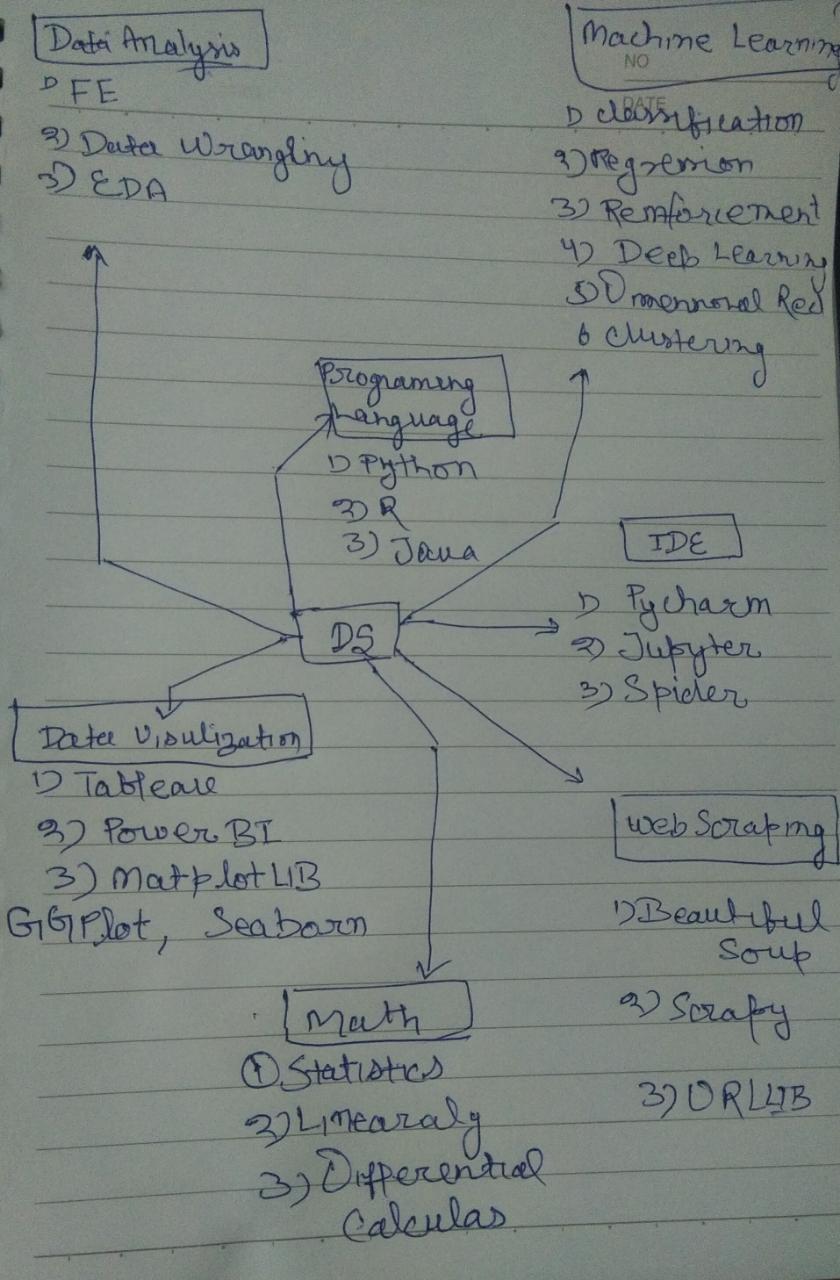 Data Analysis
1) FE
2) Data Wrangling
3) EDA
Machine Learning
NO
DATE
1) classification
2) Regression
3) Reinforcement
4) Deep Learning
5) Dimennional Red
6 Clustering
Programing
Language
1) Python
2) R
3) Java
IDE
1) Pycharm
2) Jupyter
3) Spider
DS
Data Visulization
1) Tableau
2) Power BI
3) Matplot LIB
GGPlot, Seaborn
Web Scraping
1) Beautiful
Soup
2) Scrapy
3) URLLIB
Math
1 Statistics
2) Linearalg
3) Differential
Calculas